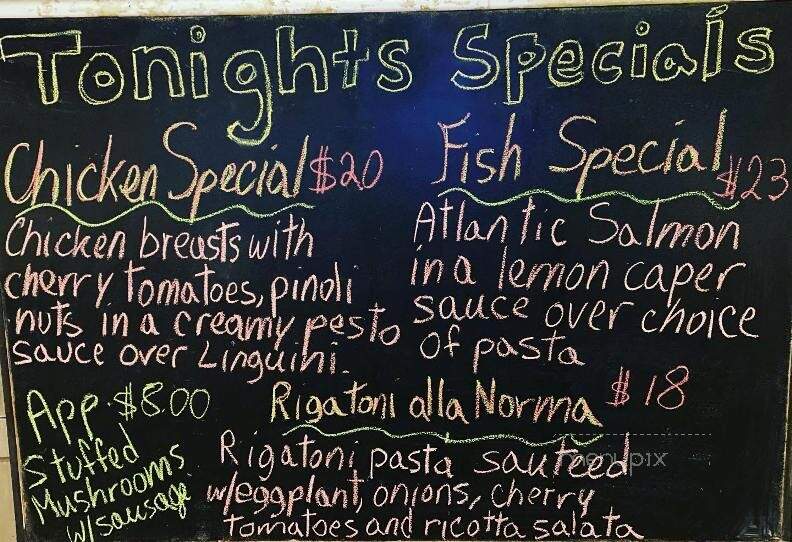 Tonights Specials
Chicken Special $20
Chicken breasts with
cherry tomatoes, pinoli
nuts in a creamy pesto
sauce over Linguini.
Fish Special $23
Atlantic Salmon
in a lemon caper
sauce over choice
of pasta
App. $8.00
Stuffed
Mushrooms
w/sausage
Rigatoni alla Norma $18
Rigatoni pasta sauteed
w/eggplant, onions, cherry
tomatoes and ricotta salata
menupix